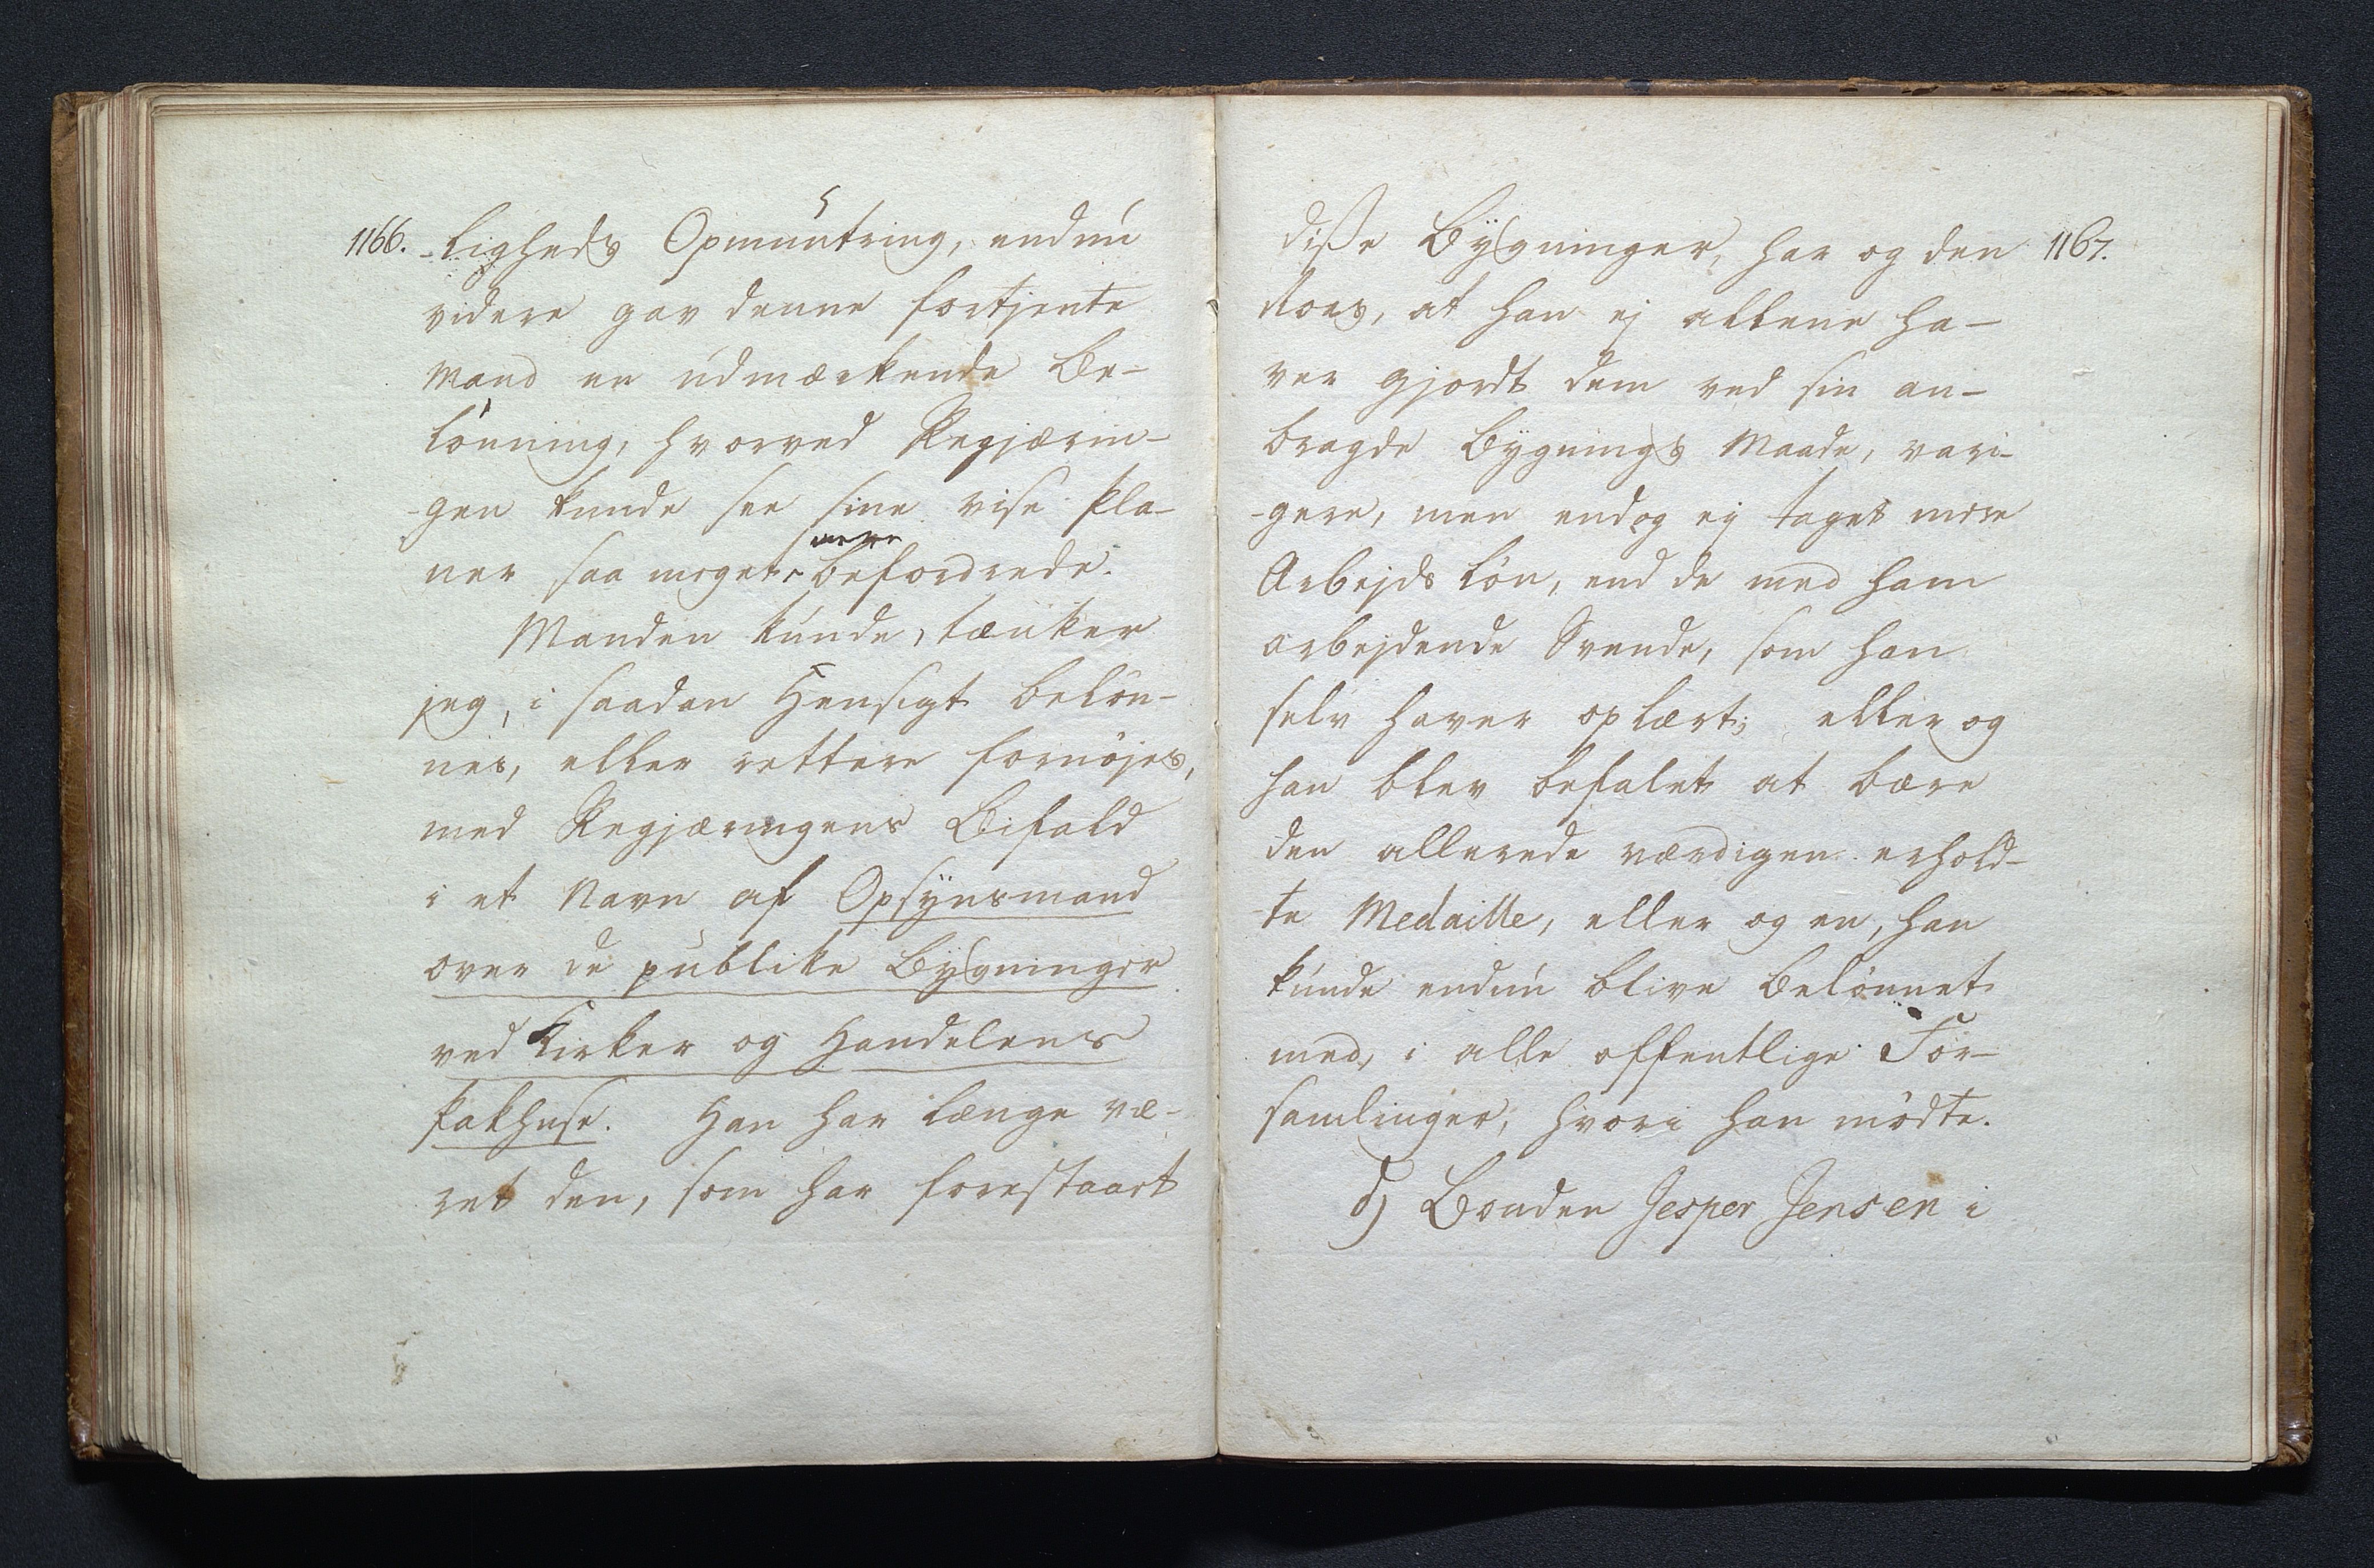 1166. -ligheds Opmuntring, endnu
videre gav denne fortjente
Mand en udmærkende Be-
lönning, hvorved Regjærin-
-gen kunde see sine vise Pla-
ner saa meget mere befordrede.
Manden kunde, tænker
jeg, i saadan Hensigt belön-
nes, eller rettere fornöjes,
med Regjæringens Bifald
i et Navn af Opsynsmand
over de publike Bygninger
ved Kirker og Handelens
Pakhuse. Han har længe væ-
ret den, som har forestaaet
disse Bygninger, har og den 1167.
Roes, at han ej allene ha-
ver gjordt dem ved sin an-
bragde Bygnings Maade, vari-
-gere, men endog ej taget mere
Arbejds Lön, end de med ham
arbejdende Svende, som han
selv haver oplært; eller og
han blev befalet at bære
den allerede værdigen erhold-
-te Medaille, eller og en, han
kunde endnu blive belönnet
med, i alle offentlige For-
samlinger, hvori han mödte.
d) Bonden Jesper Jensen i